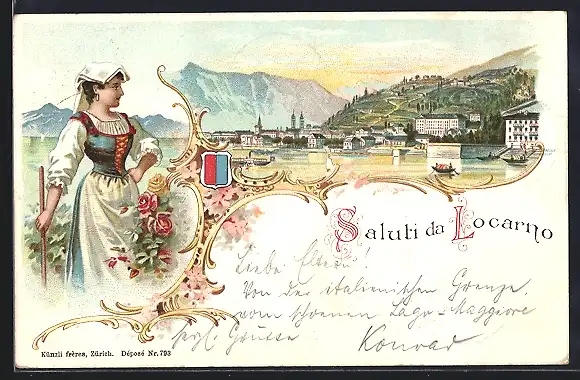 Saluti da Locarno
Liebe Eltern!
Von der italienischen Grenze,
vom schoenen Lago-Maggiore
herzl. Grüsse Konrad
Künzli frères, Zürich. Déposé Nr. 793